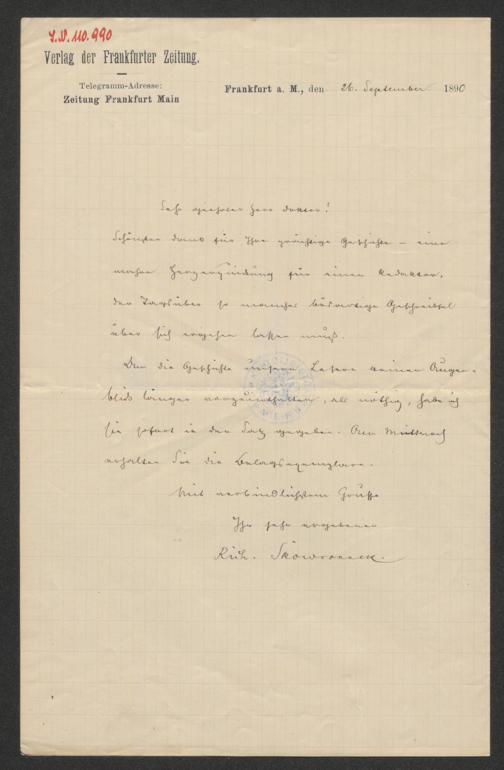 I.N. 110.990
Verlag der Frankfurter Zeitung.
Telegramm-Adresse:
Zeitung Frankfurt Main
Frankfurt a. M., den 26. September 1890
Sehr geehrter Herr Doktor!
Schönsten Dank für Ihre prächtige Geschichte – eine
wahre Herzerquickung für einen Redakter,
der Tagsüber so manches bösartige
über sich ergehen lassen muß.
Um die Geschichte unsern Lesern keinen Augen-
blick länger vorzuenthalten, als nöthig, habe ich
sie sofort in den Satz gegeben. Am Mittwoch
erhalten Sie die Belagsexemplare.
Mit verbindlichstem Gruße
Ihr sehr ergebener
Rich. Skowronnek.